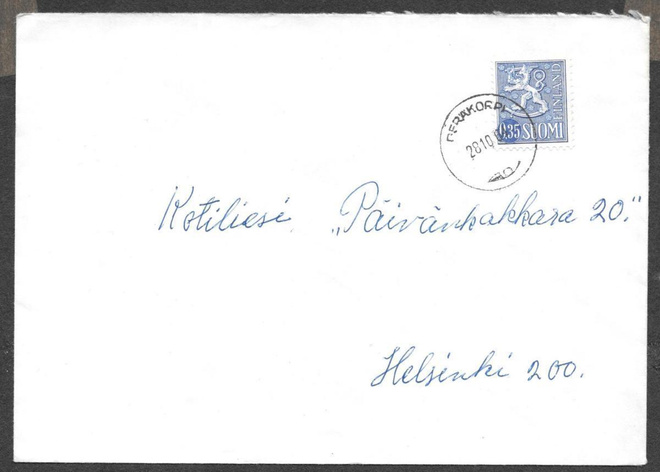 FINLAND
0,35 SUOMI
PERÄKORPI
28.10
Kotiliesi. „Päivänkakkara 20."
Helsinki 200.